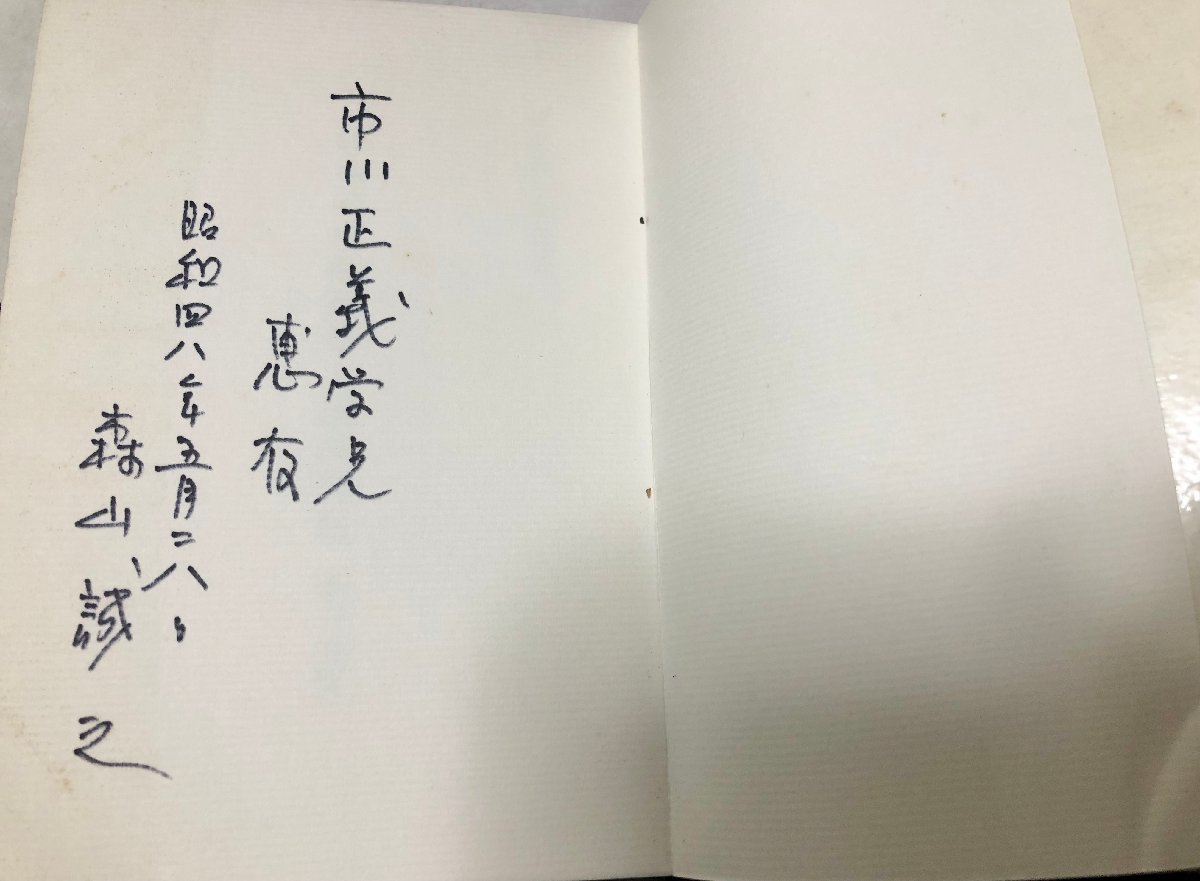 市川正義学兄
恵存
昭和四八年五月二八日
森山誠之